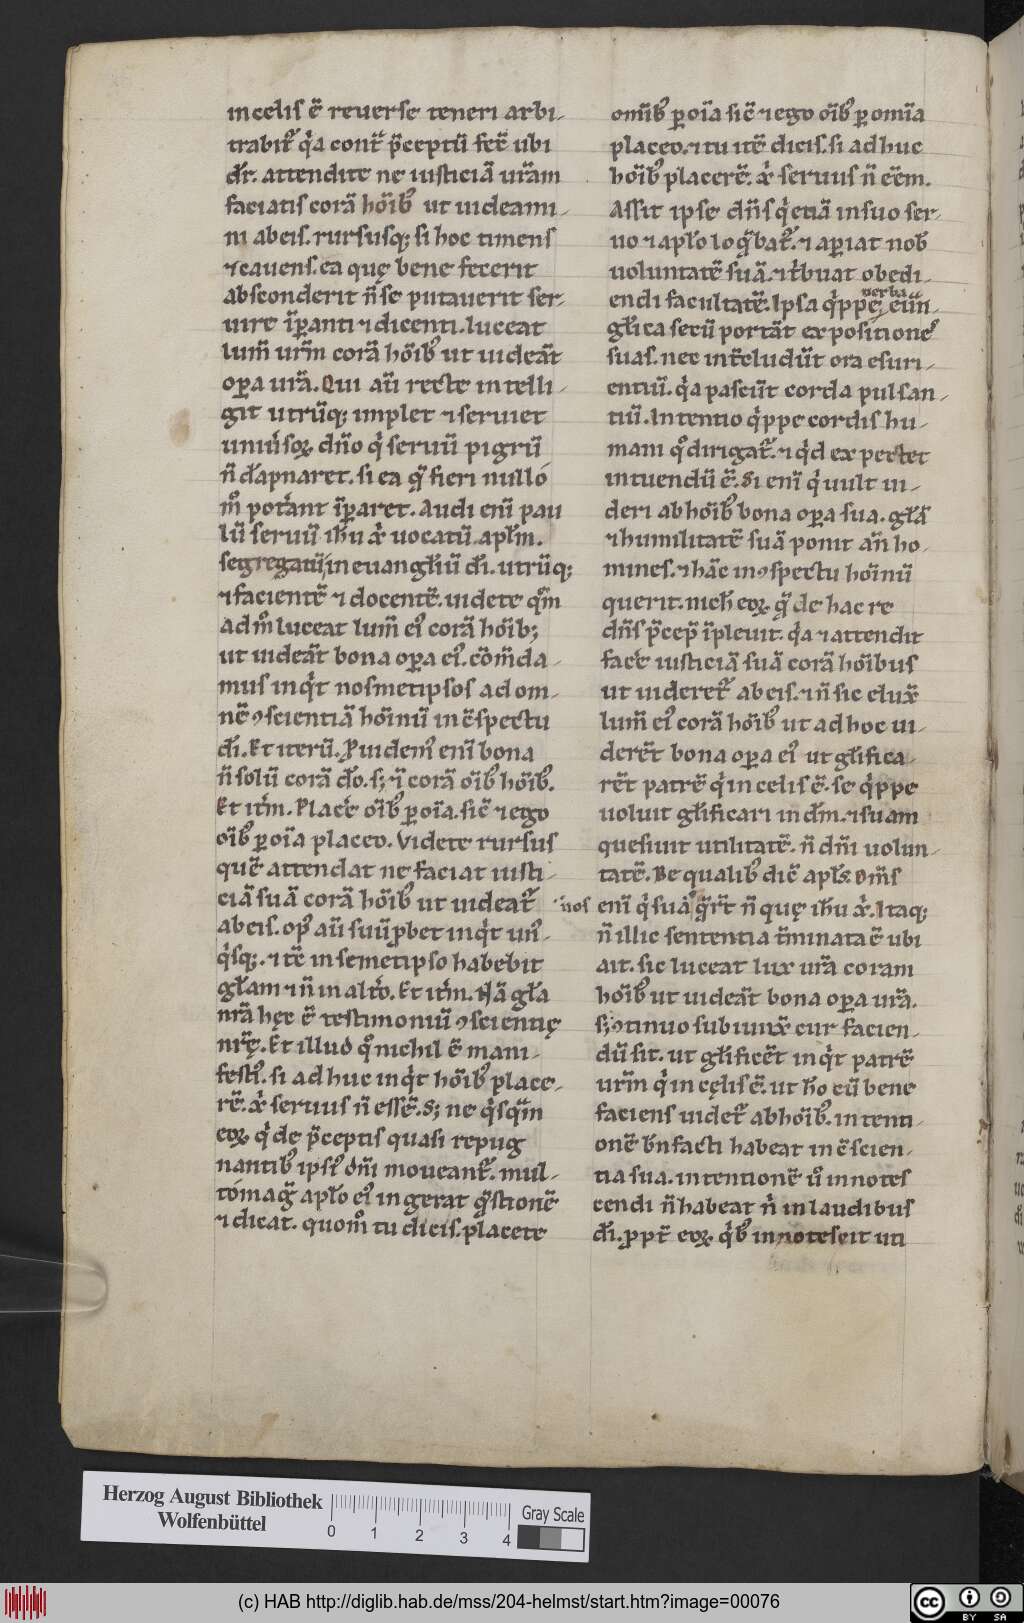 in celis ē reuerse teneri arbi-
trabit᷑ q̇a cont̄ p̄ceptū fēc ubi
dr̄. attendite ne iusticiā ur̄am
faciatis corā hōibꝰ ut uideami-
ni ab eis. rursusq; si hoc timens
⁊ cauens. ea quę bene fecerit
absconderit n̄ se putauerit ser-
uire īꝑanti ⁊ dicenti. luceat
lum̄ ur̄m corā hōibꝰ ut uideāt
oꝑa ur̄a. Qui aū recte intelli-
git utrūq; implet ⁊ seruiet
uniu̇soꝝ dn̄o q̇ seruū pigrū
n̄ dāpnaret. si ea q̄ fieri nulló
m̊ poṫant īꝑaret. Audi enī pau
lū seruū ih̄u xp̄i uocatū. apl̄m.
segregatū, in euangl̄iū dī. utrūq;
⁊ facientē ⁊ docentē. uidete q̊m
ad m̊ luceat lum̄ eiꝰ corā hōib;
ut uideāt bona oꝑa eiꝰ. cōm̄da-
mus inq̇t nosmetipsos ad om-
nē ꝯscientiā hōinū in ꝯspectu
dī. Et iterū. Ꝓuidemꝰ enī bona
n̄ solū corā dō. s; ⁊ corā oībꝰ hōibꝰ.
Et itm̄. Placete oībꝰ ꝑ oīa. sic̄ ⁊ ego
oībꝰ ꝑ oīa placeo. Videte rursus
quē attendat ne faciat iusti-
ciā suā corā hōibꝰ ut uideat᷑
ab eis. opꝰ aū suū ꝓbet inq̇t unꝰ-
q̇sq;. ⁊ tc̄ in semetipso habebit
gl̄am ⁊ n̄ in alt̊o. Et itm̄. Nā gl̄a
nr̄a hęc ē testimoniū ꝯscientię
nr̄ę. Et illud q̊ nichil ē mani-
festiꝰ. si adhuc inq̇t hōibꝰ place-
rē. xp̄i seruus n̄ essē. S; ne q̇sqm̄
eoꝝ q̇ de p̄ceptis quasi repug
nantibꝰ ipsiꝰ dn̄i moueant᷑. mul-
tómaḡ apl̄o eiꝰ ingerat q̄stionē
⁊ dicat. quom̊ tu dicis. placete
omībꝰ ꝑ oīa sic̄ ⁊ ego oībꝰ ꝑ omīa
placeo. ⁊ tu itē dicis. si adhuc
hōibꝰ placerē. xp̄i seruus n̄ eēm.
Assit ipse dn̄s q̇ etiā in suo ser-
uo ⁊ apl̄o loq̄bat᷑. ⁊ aꝑiat nobꝰ
uoluntatē suā. ⁊ tr̄buat obedi-
endi facultatē. Ipsa q̇ppe, uerba eūn-
gl̄ica secū portāt expositiones
suas. nec int̄cludūt ora esuri-
entiū. q̇a pascūt corda pulsan-
tiū. Intentio q̇ppe cordis hu-
mani q̊ dirigat᷑. ⁊ q̇d expectet
intuendū ē. Si enī q̇ uult ui-
deri ab hōibꝰ bona oꝑa sua. gl̄ā
⁊ humilitatē suā ponit an̄ ho-
mines. ⁊ hāc in ꝯspectu hōinū
querit. nich̄ eoꝝ q̄ de hac re
dn̄s p̄cep̄ īpleuit. q̇a ⁊ attendit
facere iusticiā suā corā hōibus
ut uideret᷑ ab eis. ⁊ n̄ sic elux̄
lum̄ eiꝰ corā hōibꝰ ut ad hoc ui-
derēt bona oꝑa eiꝰ ut gl̄ifica-
rēt patrē q̇ in celis ē. se q̇ppe
uoluit gl̄ificari in dm̄. ⁊ suam
quesiuit utilitatē. n̄ dn̄i uolun-
tatē. De qualibꝰ dic̄ apl̄s. Om̄s
enī q̇ sua q̄rt̄ n̄ quę ih̄u xp̄i. Itaq;
n̄ illic sententia t̄minata ē ubi
ait. sic luceat lux ur̄a coram
hōibꝰ ut uideāt bona oꝑa ur̄a.
s; ꝯtinuo subiunx̄ cur facien-
dū sit. ut gl̄ificēt inq̇t patrē
ur̄m q̇ in cęlis ē. ut hō cū bene
faciens uidet᷑ ab hōibꝰ. intenti-
onē bn̄facti habeat in ꝯscien-
tia sua. intentionē ů innotes
cendi n̄ habeat n̄ in laudibus
dī. ꝓpt̄ eoꝝ q̇bꝰ innotescit uti
Herzog August Bibliothek
Wolfenbüttel
0 1 2 3 4
Gray Scale
(c) HAB http://diglib.hab.de/mss/204-helmst/start.htm?image=00076
cc BY SA